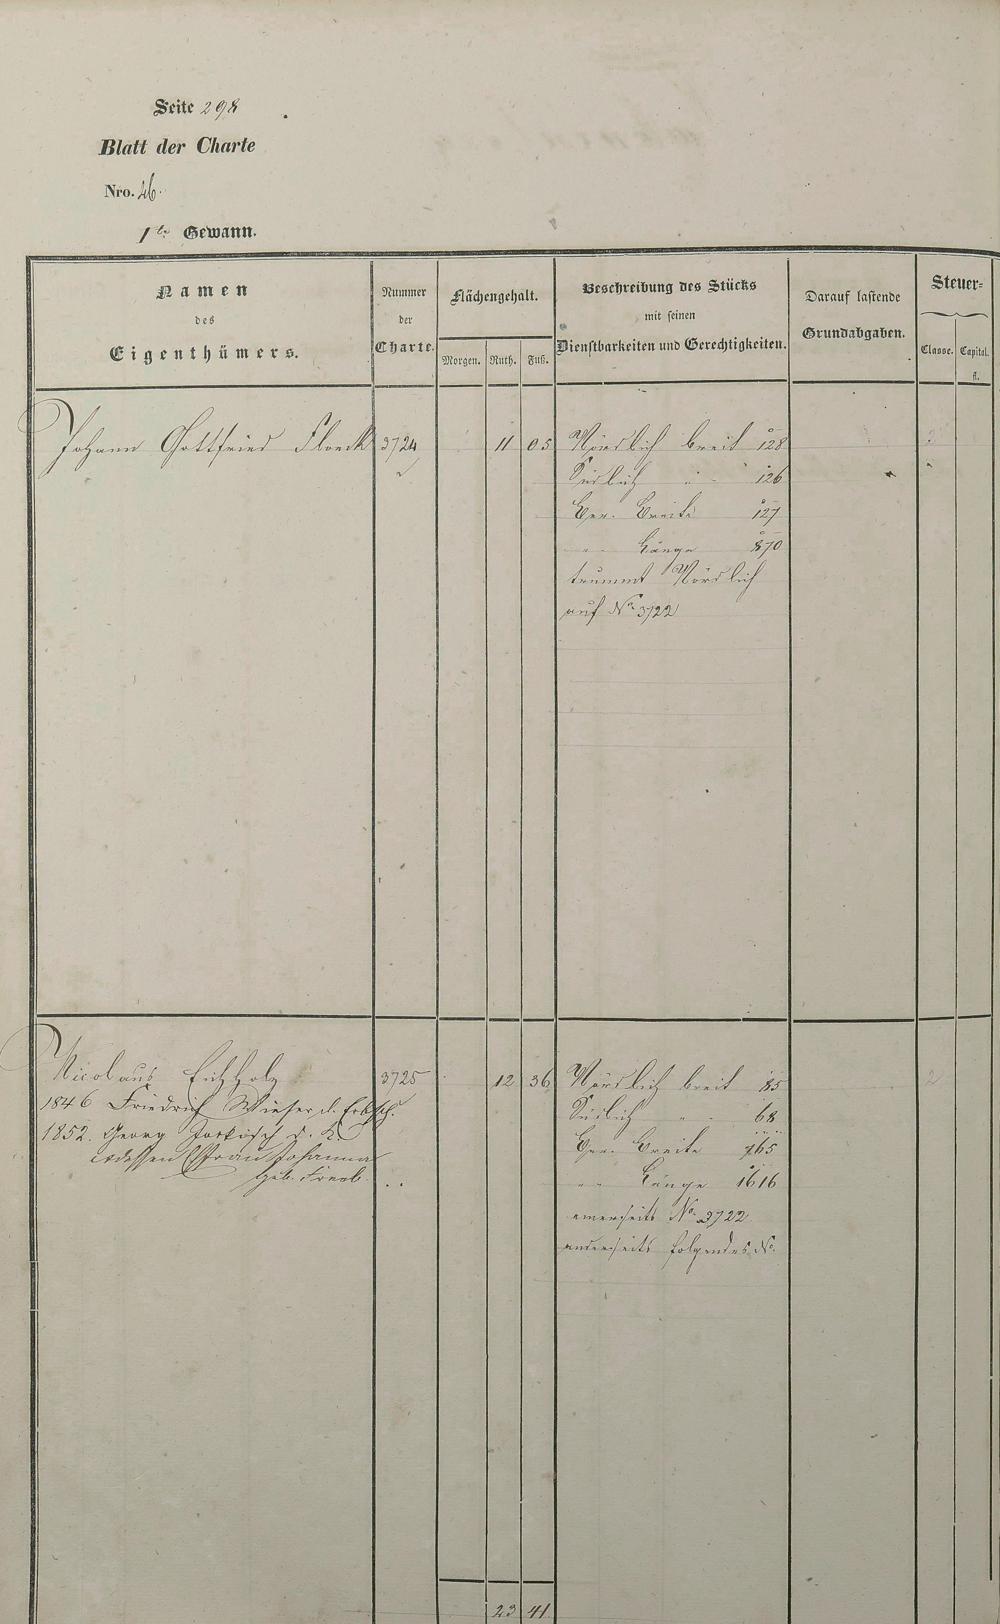 Seite 298
Blatt der Charte
Nro. 46.
1te Gewann.
Namen
des
Eigenthümers.
Nummer
der
Charte.
Flächengehalt.
Morgen. Ruth. Fuß.
Beschreibung des Stücks
mit seinen
Dienstbarkeiten und Gerechtigkeiten.
Darauf lastende
Grundabgaben.
Steuer-
Classe. Capital.
fl.
Johann Gottfried Floeck 3724 11 05 Nördlich breit 128
Südlich " " 126
Ger. Breite 127
" " Länge 870
trummt Nördlich
auf No 3722
Nicolaus Eichholz 3725 12 36 Nördlich breit 85 2
1846 Friedrich Wieser d. Erbsch. Südlich " " 68
1852. Georg d. K. Ger. Breite 765
dessen Frau Johanna
" " Länge 1616
geb.
einerseits No 3722
anderseits folgendes No
23 41